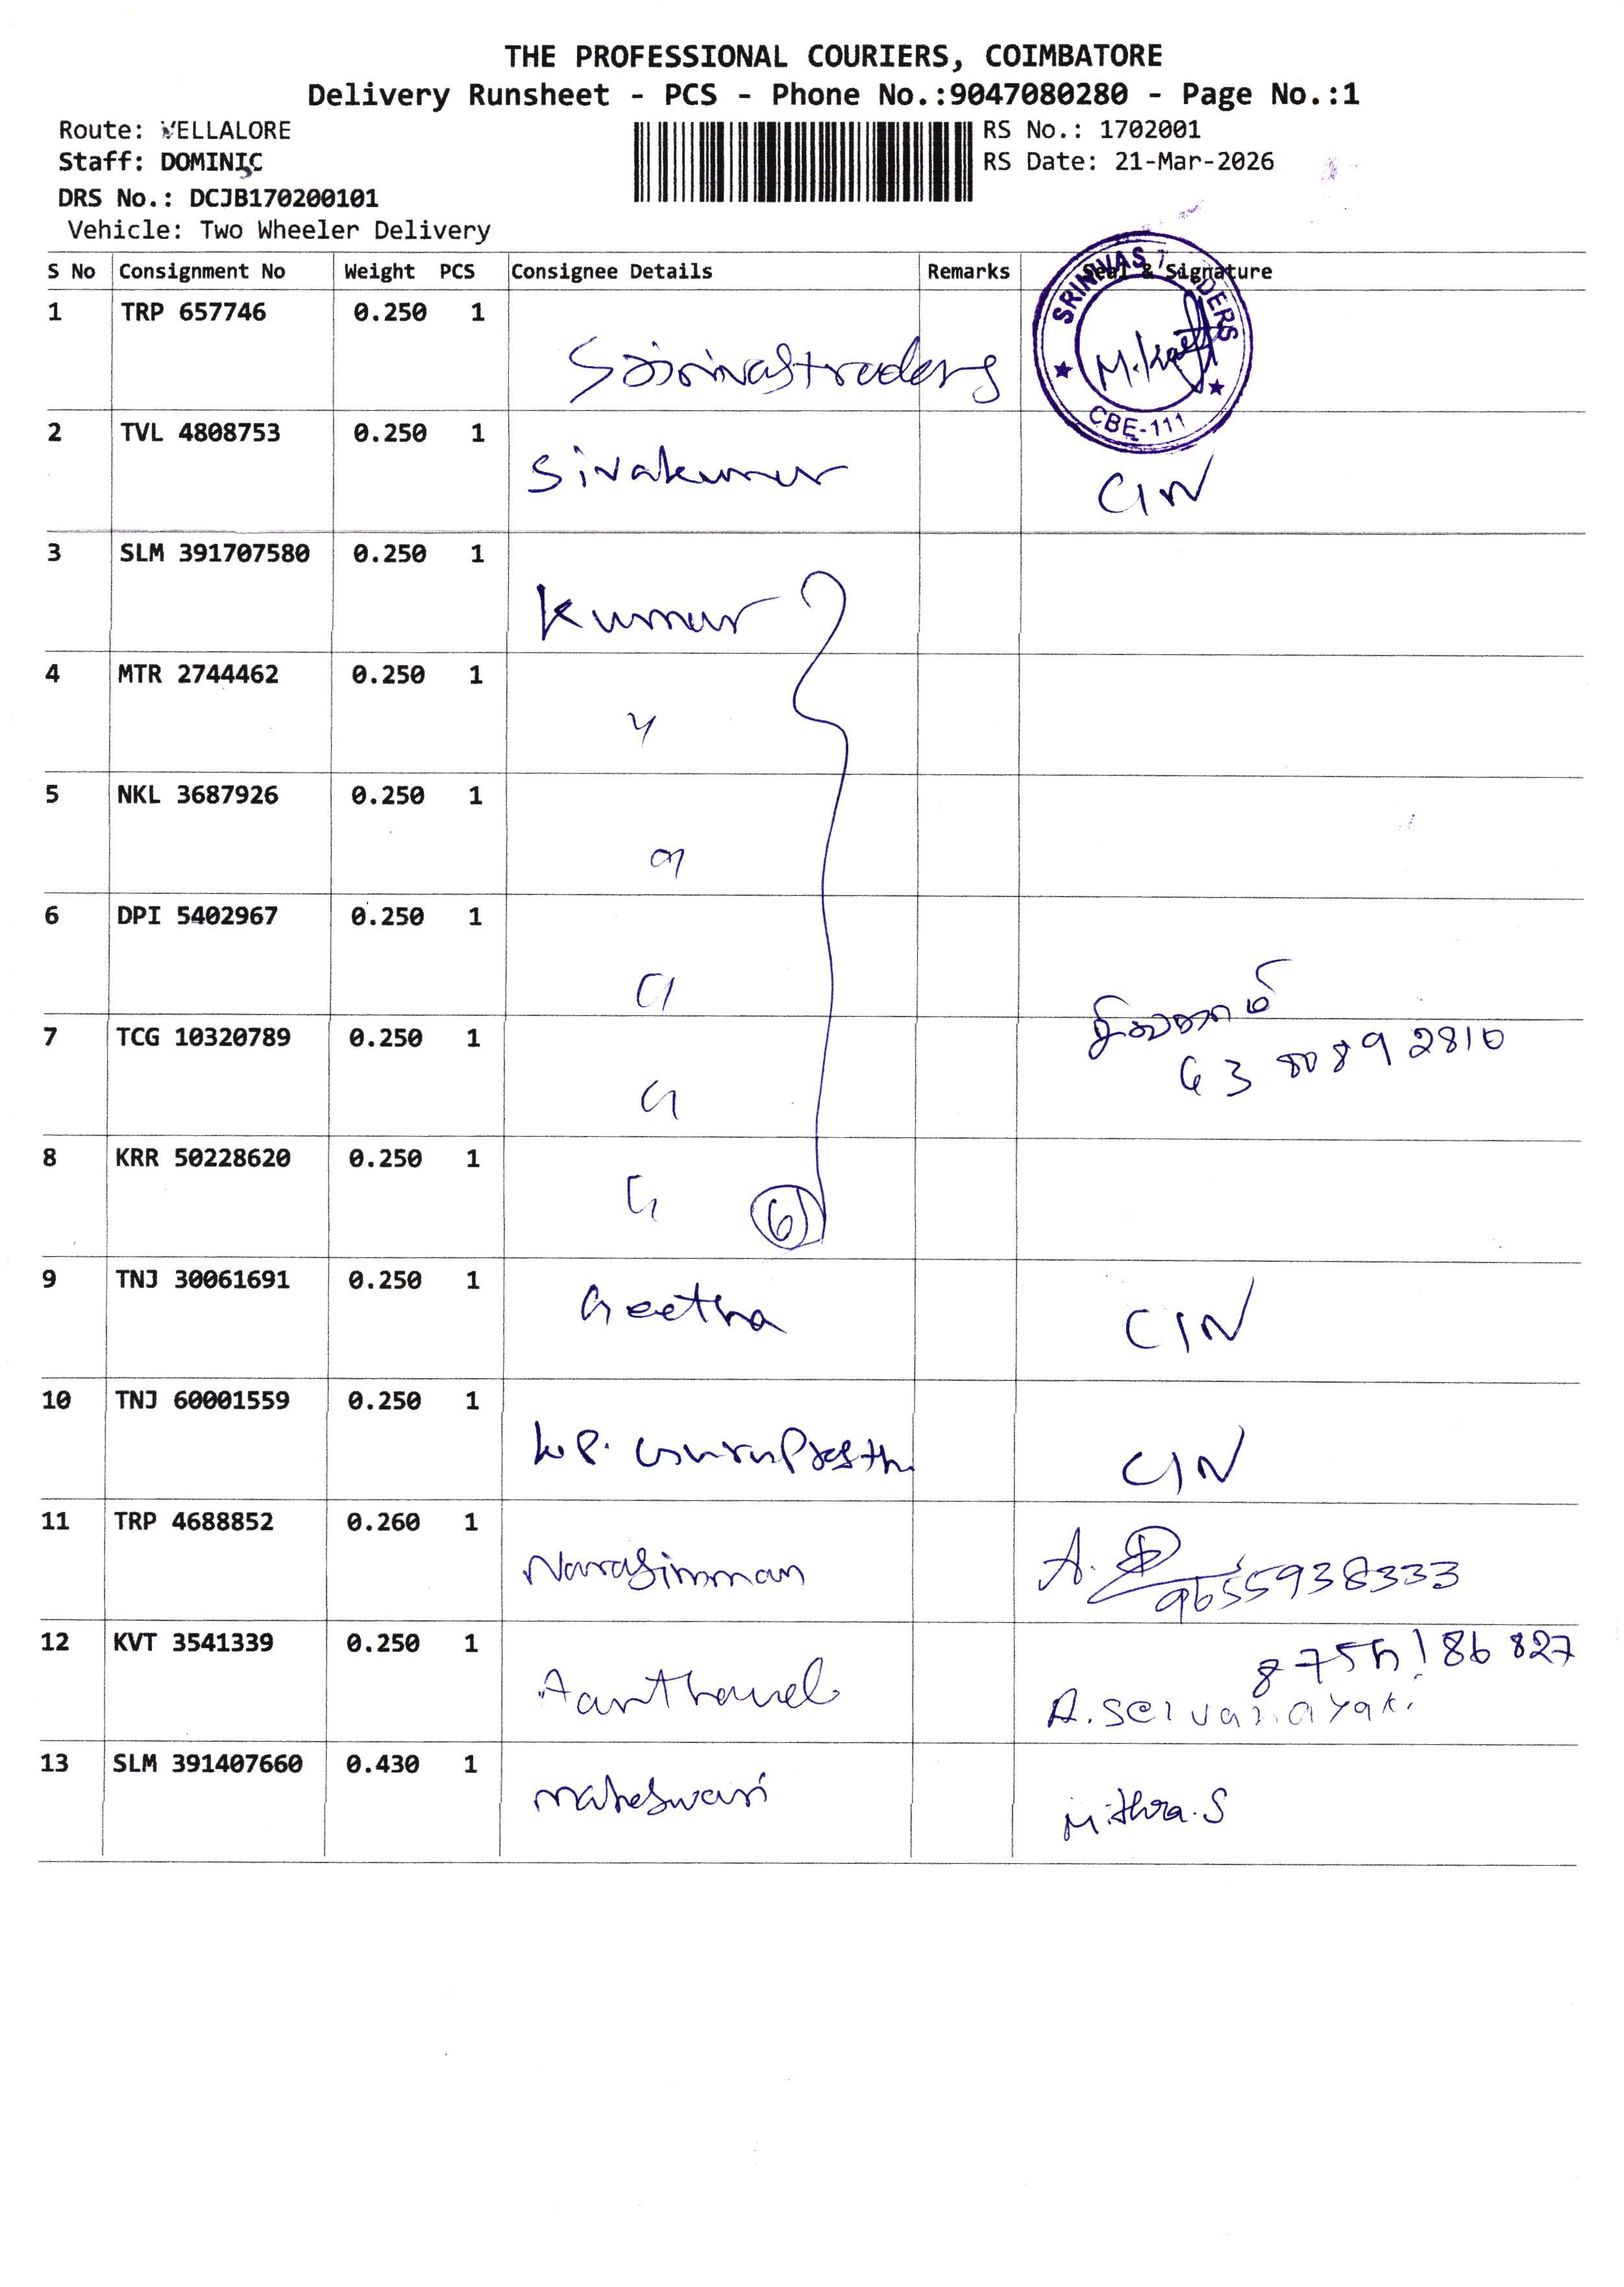 THE PROFESSIONAL COURIERS, COIMBATORE
Delivery Runsheet - PCS - Phone No.:9047080280 - Page No.:1
Route: VELLALORE
RS No.: 1702001
Staff: DOMINIC
RS Date: 21-Mar-2026
DRS No.: DCJB170200101
Vehicle: Two Wheeler Delivery
S No Consignment No Weight PCS Consignee Details Remarks Seal & Signature
1 TRP 657746 0.250 1
SRINIVAS
CBE-111
2 TVL 4808753 0.250 1 Sivakumar CIN
3 SLM 391707580 0.250 1 Kumar
4 MTR 2744462 0.250 1
5 NKL 3687926 0.250 1
6 DPI 5402967 0.250 1
7 TCG 10320789 0.250 1
8 KRR 50228620 0.250 1 6
9 TNJ 30061691 0.250 1 Geetha CIN
10 TNJ 60001559 0.250 1 CIN
11 TRP 4688852 0.260 1 Narasimman 9655938333
12 KVT 3541339 0.250 1
13 SLM 391407660 0.430 1 Maheswari Mithra.S